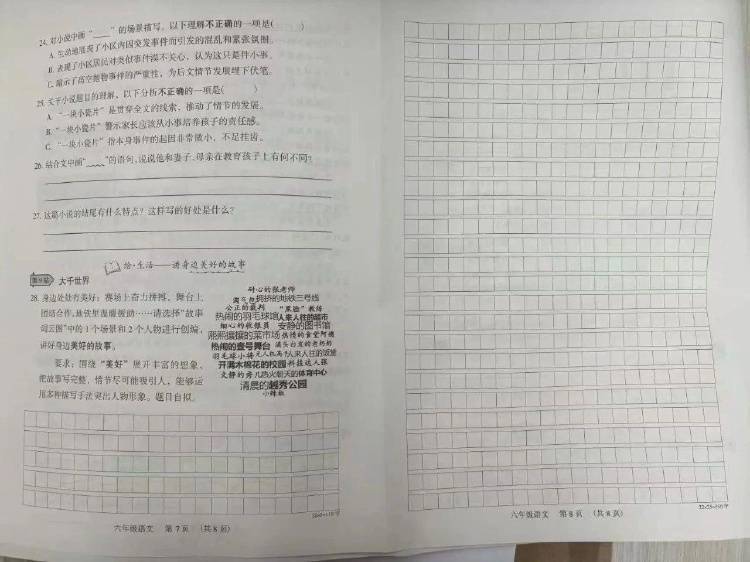 24. 对小说中画“____”的场景描写，以下理解不正确的一项是(　　)
A. 生动地展现了小区内因突发事件而引发的混乱和紧张氛围。
B. 表现了小区居民对类似事件漠不关心，认为这只是件小事。
C. 暗示了高空抛物事件的严重性，为后文情节发展埋下伏笔。
25. 关于小说题目的理解，以下分析不正确的一项是(　　)
A. “一块小瓷片”是贯穿全文的线索，推动了情节的发展。
B. “一块小瓷片”警示家长应该从小事培养孩子的责任感。
C. “一块小瓷片”指本身事件的起因非常微小，不足挂齿。
26. 结合文中画“﹏﹏”的语句，说说他和妻子、母亲在教育孩子上有何不同？
27. 这篇小说的结尾有什么特点？这样写的好处是什么？
绘·生活——讲身边美好的故事
大千世界
28. 身边处处有美好：赛场上奋力拼搏，舞台上
团结合作，地铁里温暖援助……请选择“故事
词云图”中的1个场景和2个人物进行创编，
讲好身边美好的故事。
要求：围绕“美好”展开丰富的想象，
把故事写完整，情节尽可能吸引人，能够运
用多种描写手法突出人物形象。题目自拟。
耐心的张老师
拥挤的地铁三号线
公正的裁判 “黑脸”教练
热闹的羽毛球馆 人来人往的超市
细心的收银员 安静的图书馆
熙熙攘攘的菜市场 热情的食堂阿姨
热闹的壹号舞台 满头白发的老奶奶
羽毛球小将 人来人往的饭堂
开满木棉花的校园 科技达人张
文静的旁儿 热火朝天的体育中心
清晨的越秀公园
小辣椒
六年级语文　第7页　(共8页)
六年级语文　第8页　(共8页)